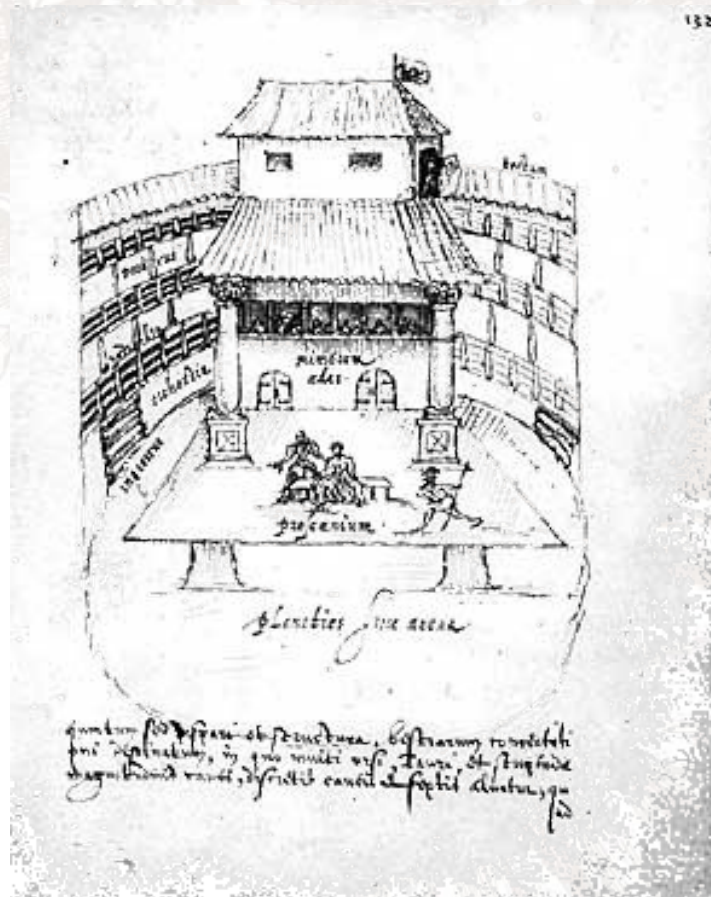 132
tectum
porticus
sedilia
orchestra
ingressus
mimorum
ædes
proscænium
planities siue arena
et structura, bestiarum
in quo multi ursi, Tauri, et stupendæ
magnitudinis canes, discretis caueis & septis aluntur, qui
ad